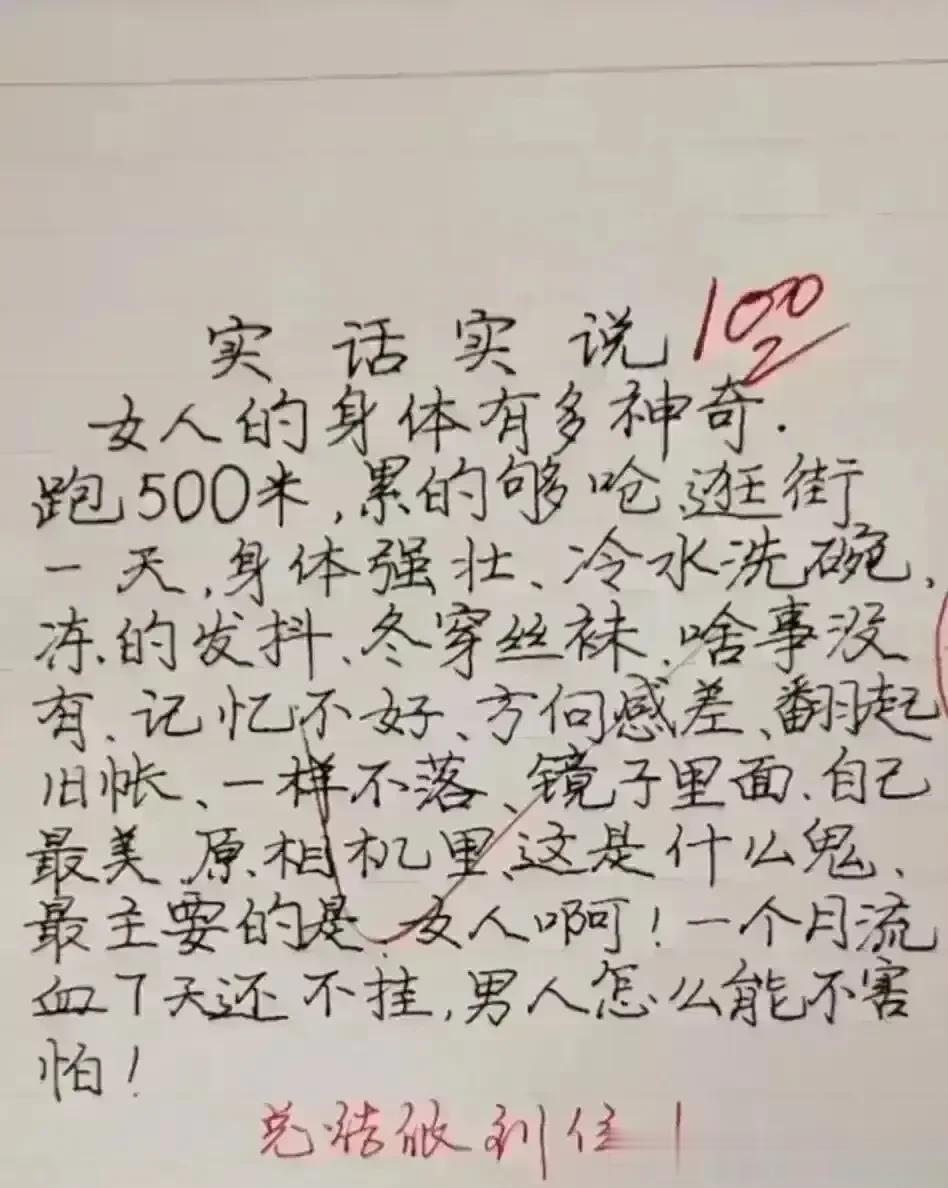 实话实说 100
女人的身体有多神奇.
跑500米,累的够呛、逛街
一天,身体强壮、冷水洗碗,
冻的发抖、冬穿丝袜、啥事没
有、记忆不好、方向感差、翻起
旧帐、一样不落、镜子里面、自己
最美、原相机里、这是什么鬼、
最主要的是、女人啊!一个月流
血7天还不挂,男人怎么能不害
怕!
总结的到位!